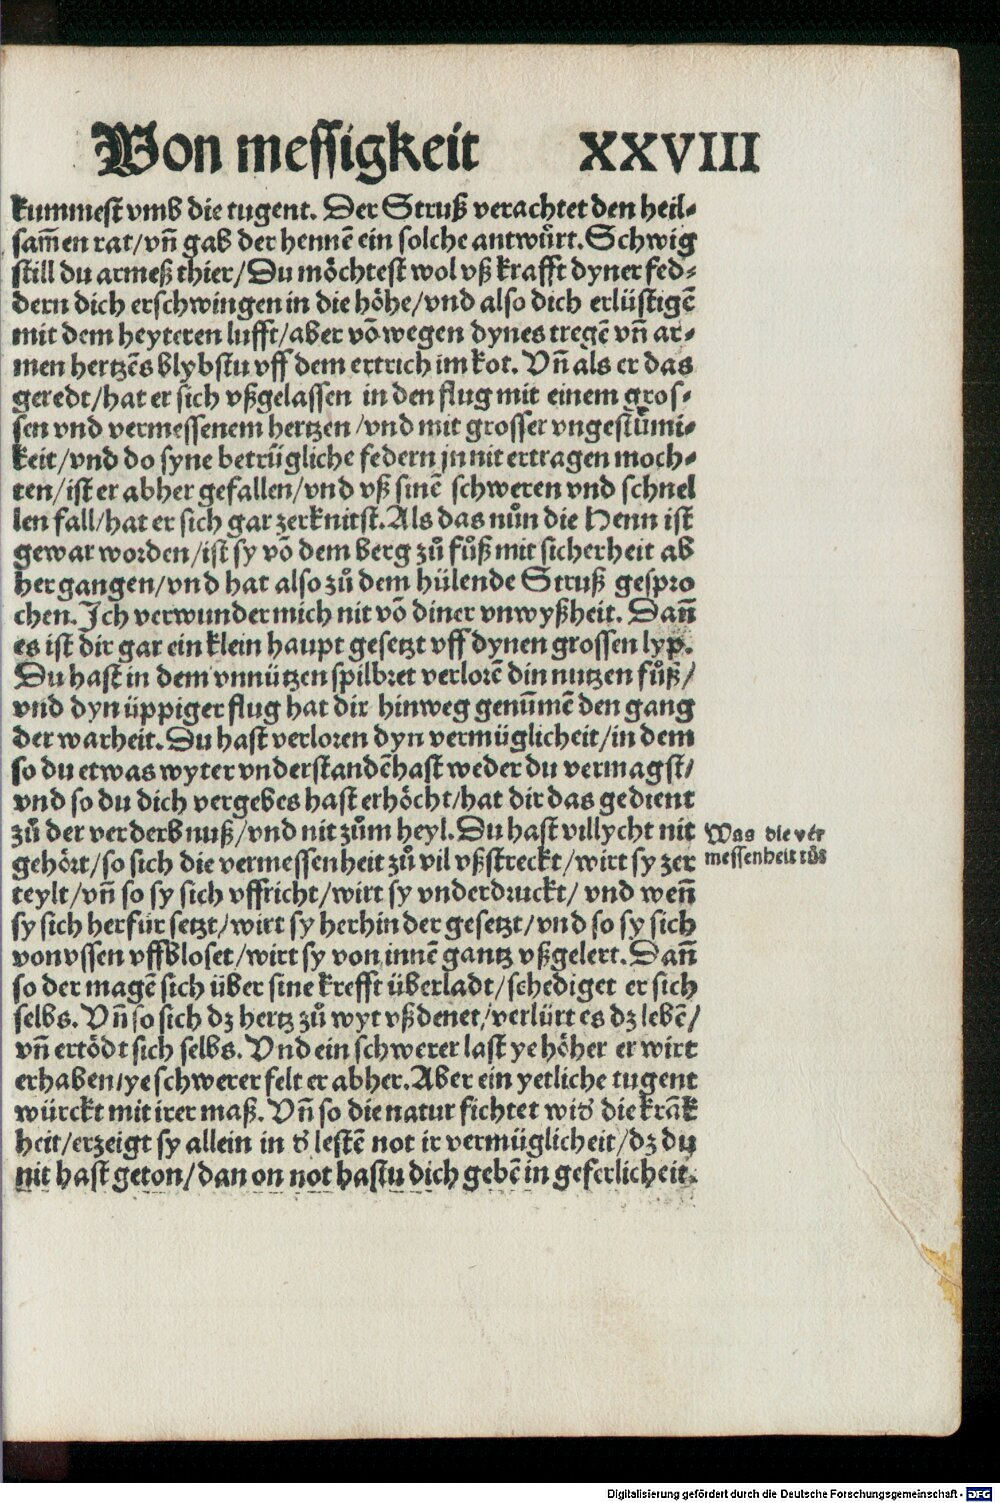 Von messigkeit XXVIII
kummest vmb die tugent. Der Struß verachtet den heil⸗
sam̃en rat/vn̄ gab der hennē ein solche antwůrt. Schwig
still du armeß thier/Du möchtest wol vß krafft dyner fed⸗
dern dich erschwingen in die höhe/vnd also dich erlüstigē
mit dem heyteren lufft/aber vō wegen dynes tregē vn̄ ar⸗
men hertzēs blybstu vff dem ertrich im kot. Vn̄ als er das
geredt/hat er sich vßgelassen in den flug mit einem gros⸗
sen vnd vermessenem hertzen/vnd mit grosser vngestůmi⸗
keit/vnd do syne betrügliche federn jn nit ertragen moch⸗
ten/ist er abher gefallen/vnd vß sinē schweren vnd schnel
len fall/hat er sich gar zerknitst. Als das nůn die Henn ist
gewar worden/ist sy vō dem berg zů fůß mit sicherheit ab
her gangen/vnd hat also zů dem hülende Struß gespro
chen. Ich verwunder mich nit vō diner vnwyßheit. Dan̄
es ist dir gar ein klein haupt gesetzt vff dynen grossen lyp.
Du hast in dem vnnützen spilbret verlorē din nutzen fůß/
vnd dyn üppiger flug hat dir hinweg genum̄ē den gang
der warheit. Du hast verloren dyn vermüglicheit/in dem
so du etwas wyter vnderstandē hast weder du vermagst/
vnd so du dich vergebes hast erhöcht/hat dir das gedient
zů der verderbnuß/vnd nit zům heyl. Du hast villycht nit
gehört/so sich die vermessenheit zů vil vßstreckt/wirt sy zer
teylt/vn̄ so sy sich vffricht/wirt sy vnderdruckt/ vnd wen̄
sy sich herfür setzt/wirt sy herhinder gesetzt/vnd so sy sich
von vssen vffbloset/wirt sy von innē gantz vßgelert. Dan̄
so der magē sich über sine krefft überladt/schediget er sich
selbs. Vn̄ so sich dz hertz zů wyt vßdenet/verlürt es dz lebē/
vn̄ ertödt sich selbs. Vnd ein schwerer last ye höher er wirt
erhaben/ye schwerer felt er abher. Aber ein yetliche tugent
würckt mit irer maß. Vn̄ so die natur fichtet wid̕ die krāk
heit/erzeigt sy allein in d̕ lestē not ir vermüglicheit/dz du
nit hast geton/dan on not hastu dich gebē in geferlicheit.
Was die ver
messenheit tůs
Digitalisierung gefördert durch die Deutsche Forschungsgemeinschaft - DFG